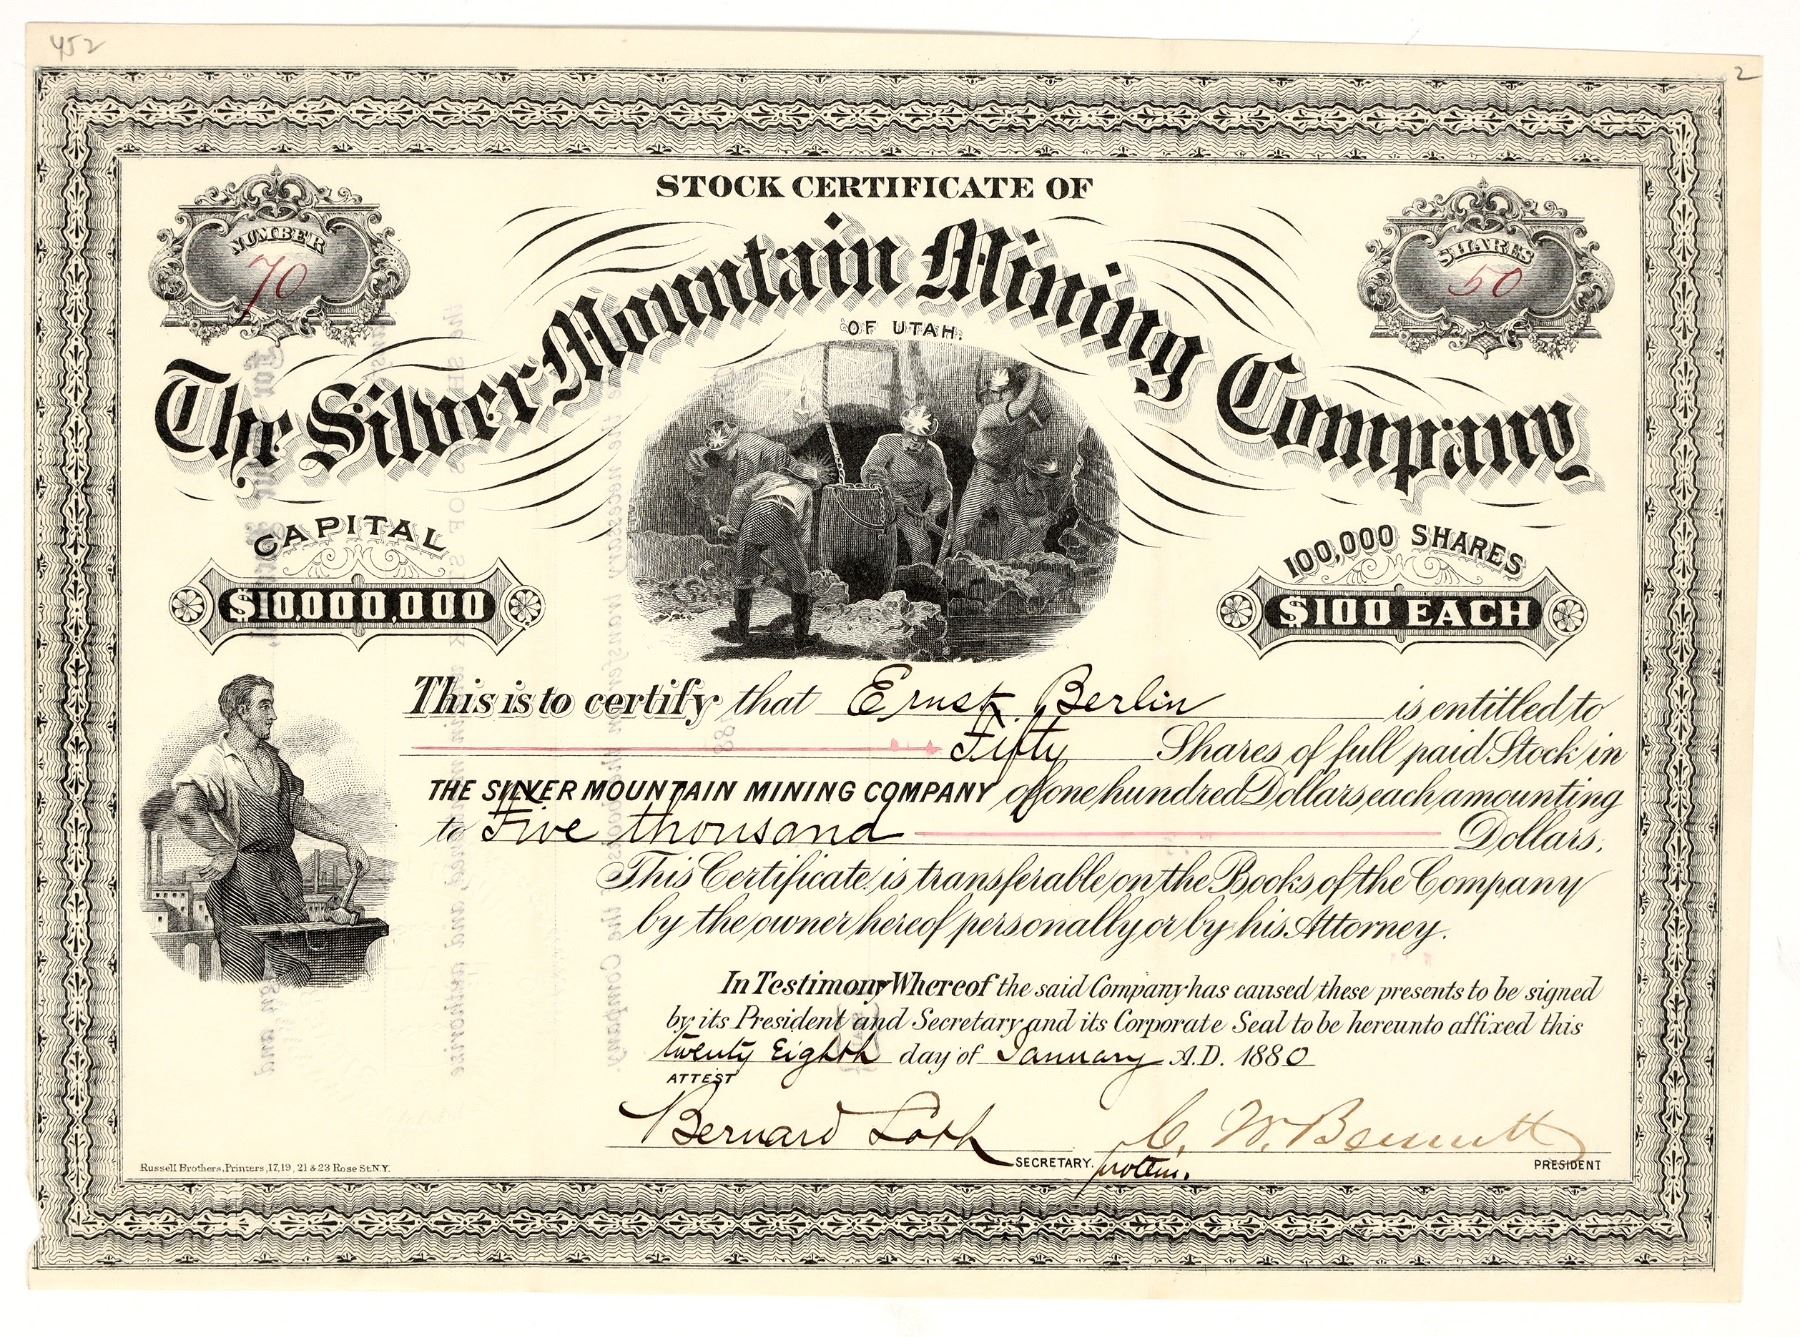 452
2
STOCK CERTIFICATE OF
NUMBER
70
SHARES
50
The Silver Mountain Mining Company
OF UTAH.
CAPITAL
$10,000,000
100,000 SHARES
$100 EACH
This is to certify that Ernst Berlin is entitled to
Fifty Shares of full paid Stock in
THE SILVER MOUNTAIN MINING COMPANY of one hundred Dollars each amounting
to Five thousand Dollars.
This Certificate is transferable on the Books of the Company
by the owner hereof personally or by his Attorney.
In Testimony Whereof the said Company has caused these presents to be signed
by its President and Secretary and its Corporate Seal to be hereunto affixed this
twenty Eighth day of January A.D. 1880
ATTEST
Bernard Loth
SECRETARY.
C. W. Bennett
protem.
PRESIDENT
Russell Brothers, Printers, 17, 19, 21 & 23 Rose St. N.Y.